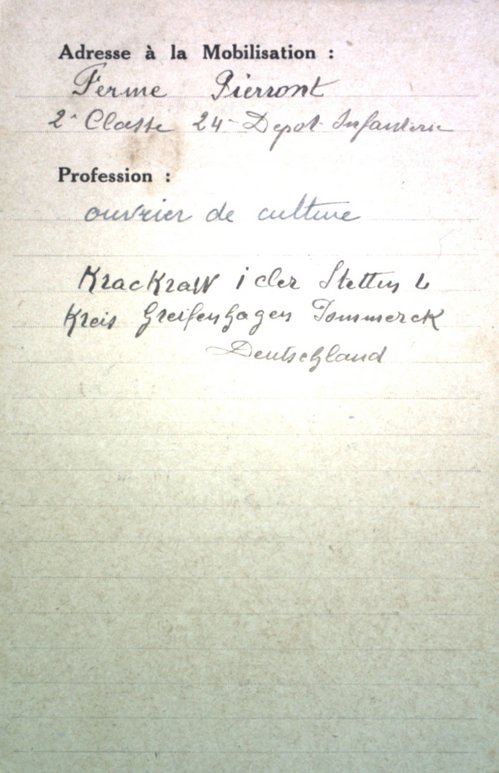 Adresse à la Mobilisation :
Ferme Pierront
2e Classe 24e Depot Infanterie
Profession :
ouvrier de culture
Krackraw i der Stettin
Kreis Greifenhagen Pommerck
Deutschland